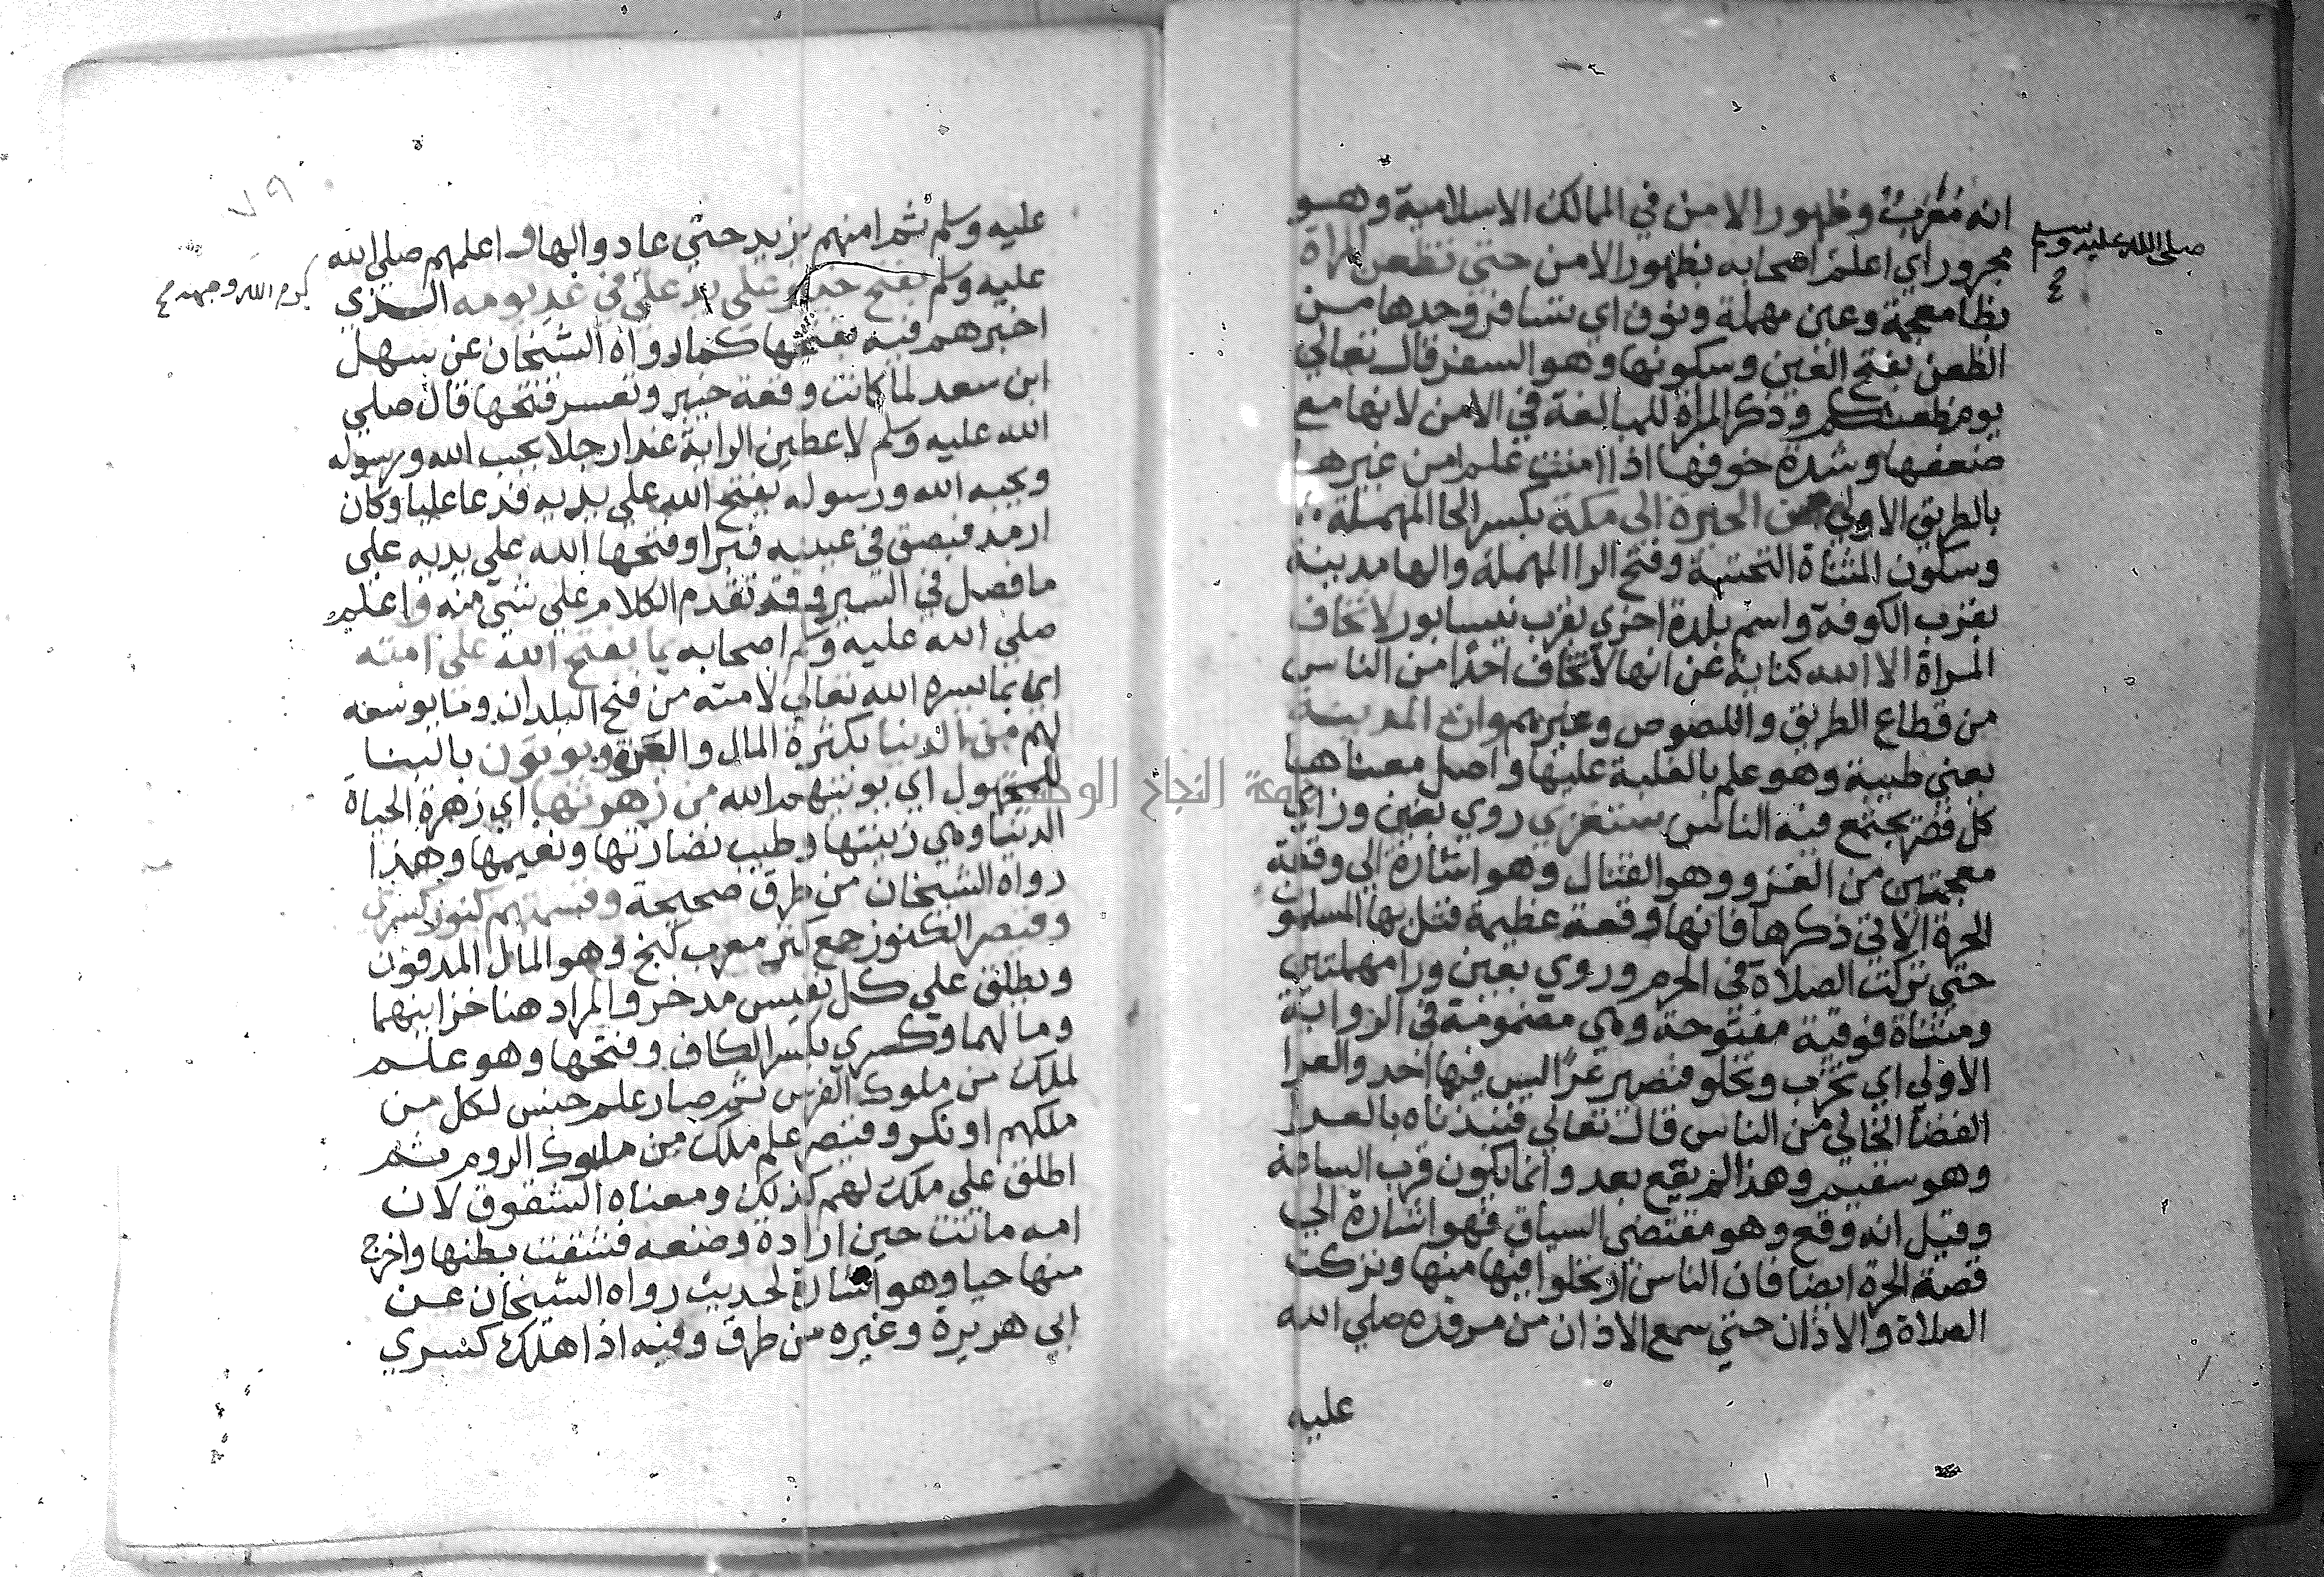 انه مغرب وظهور الامن في الممالك الاسلامية وهو
صلى الله عليه وسلم
مجرور اي اعلم اصحابه بظهور الامن حتى تظعن المراة
بظا معجمة وعين مهملة ونون اي تسافر وحدها من
الظعن بفتح العين وسكونها وهو السفر قال تعالى
يوم ظعنكم وذكر المراة للمبالغة في الامن لانها مع
ضعفها وشدة خوفها اذا امنت علم امن غيرها
بالطريق الاولى من الحيرة الى مكة بكسر الحا المهملة
وسكون المثناة التحتية وفتح الرا المهملة والها مدينة
بقرب الكوفة واسم بلدة اخرى بقرب نيسابور لا تخاف
المراة الا الله كناية عن انها لا تخاف احدا من الناس
من قطاع الطريق واللصوص وغيرهم وان المدينة
يعني طيبة وهو علم بالغلبة عليها واصل معناها
كل قصر يجتمع فيه الناس ستغزى روي بغين وزاي
معجمتين من الغزو وهو القتال وهو اشارة الى وقعة
الحرة الاتي ذكرها فانها وقعة عظيمة قتل بها المسلمون
حتى تركت الصلاة في الحرم وروي بعين ورا مهملتين
ومثناة فوقية مفتوحة وهي مضمومة في الرواية
الاولى اي تخرب وتخلو فتصير عرا ليس فيها احد والعرا
الفضا الخالي من الناس قال تعالى فنبذناه بالعرا
وهو سقيم وهذا لم يقع بعد وانما يكون قرب الساعة
وقيل انه وقع وهو مقتضى السياق فهو اشارة الى
قصة الحرة ايضا فان الناس ارتحلوا فيها منها وتركت
الصلاة والاذان حتى سمع الاذان من مرقده صلى الله
عليه
٧٩
عليه وسلم ثم امنهم يزيد حتى عادوا لها واعلمهم صلى الله
عليه وسلم بفتح خيبر على يد علي في غد يومه الذي
كرم الله وجهه
اخبرهم فيه بفتحها كما رواه الشيخان عن سهل
ابن سعد لما كانت وقعة خيبر وتعسر فتحها قال صلى
الله عليه وسلم لاعطين الراية غدا رجلا يحب الله ورسوله
ويحبه الله ورسوله يفتح الله على يديه فدعا عليا وكان
ارمد فبصق في عينيه فبرا وفتحها الله على يديه على
ما فصل في السير وقد تقدم الكلام على شي منه واعلم
صلى الله عليه وسلم اصحابه بما يفتح الله على امته
اي بما يسره الله تعالى لامته من فتح البلدان وما يوسعه
لهم من الدنيا بكثرة المال والعزة ويوتون بالبنا
للمجهول اي يوتيهم الله من زهرتها اي زهرة الحياة
الدنيا وهي زينتها وطيب نضارتها ونعيمها وهذا
رواه الشيخان من طرق صحيحة وقسمتهم كنوز كسرى
وقيصر الكنوز جمع كنز معرب كنج وهو المال المدفون
ويطلق على كل نفيس مدخر والمراد هنا خزاينهما
ومالهما وكسرى بكسر الكاف وفتحها وهو علم
لملك من ملوك الفرس ثم صار علم جنس لكل من
ملكهم او نكر وقيصر علم ملك من ملوك الروم ثم
اطلق على ملك لهم كذلك ومعناه الشقوق لان
امه ماتت حين ارادة وضعه فشقت بطنها واخرج
منها حيا وهو اشارة لحديث رواه الشيخان عن
ابي هريرة وغيره من طرق وفيه اذا هلك كسرى
جامعة النجاح الوطنية